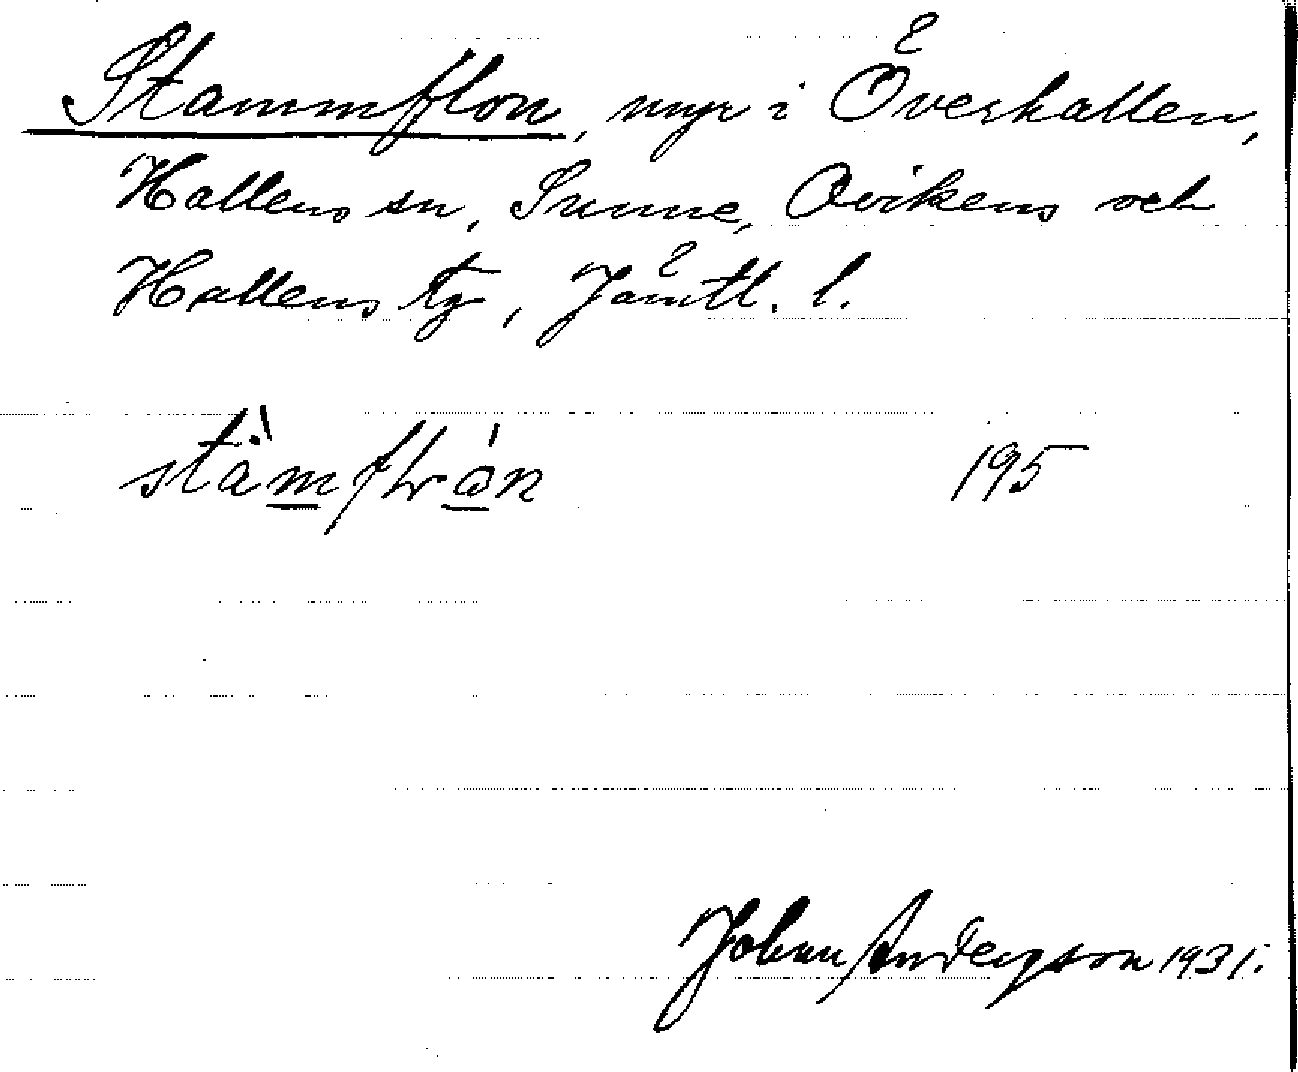 Stammflon, myr i Överhallen,
Hallens sn, Sunne, Ovikens och
Hallens tg, Jämtl. l.
195
Johan Andersson 1931.